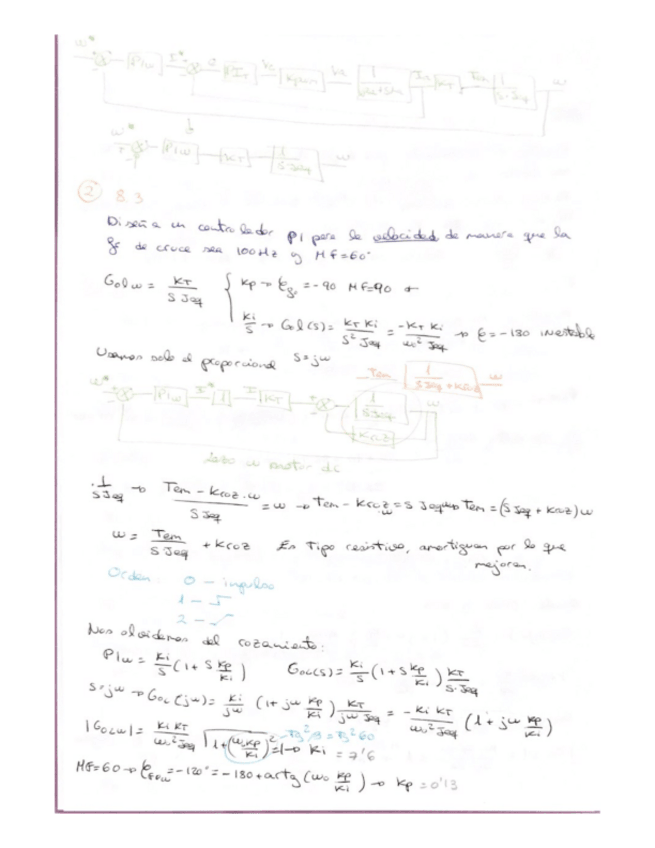 ω* PIω I* e PI_T Vc Kpwm Va 1 Ia K_T Tem 1/(S·Jeq) ω
ω* PIω K_T 1/(S Jeq) ω
② 8.3
Diseña un controlador PI para la velocidad de manera que la
de cruce sea 100Hz y MF=60°
Golω = K_T/(S Jeq) { Kp → φ = -90 MF=90
Ki/S → Gol(s) = K_T Ki/(S² Jeq) = -K_T Ki/(ω₀² Jeq) → φ = -180 inestable
Usamos solo el proporcional S=jω
Tem 1/(S Jeq + Kroz) ω
ω* PIω I* 1 I K_T 1/(S Jeq) ω
Kroz
lazo ω motor dc
1/(S Jeq) → (Tem - Kroz·ω)/(S Jeq) = ω → Tem - Kroz·ω = S Jeq ω → Tem = (S Jeq + Kroz) ω
ω = Tem/(S Jeq) + Kroz En Tipo resistivo, amortiguan por lo que
mejoran.
Orden 0 - impulso
1 -
2 -
Nos olvidamos del rozamiento:
PIω = Ki/S (1 + S Kp/Ki) GOL(s) = Ki/S (1 + S Kp/Ki) K_T/(S·Jeq)
S=jω → GOL(jω) = Ki/jω (1 + jω Kp/Ki) K_T/(jω Jeq) = -Ki K_T/(ω₀² Jeq) (1 + jω Kp/Ki)
|GOLω| = Ki K_T/(ω₀² Jeq) √(1 + (ω₀ Kp/Ki)²) = 1 → Ki = 7'6
MF=60 → φ = -120° = -180 + artg (ω₀ Kp/Ki) → Kp = 0'13